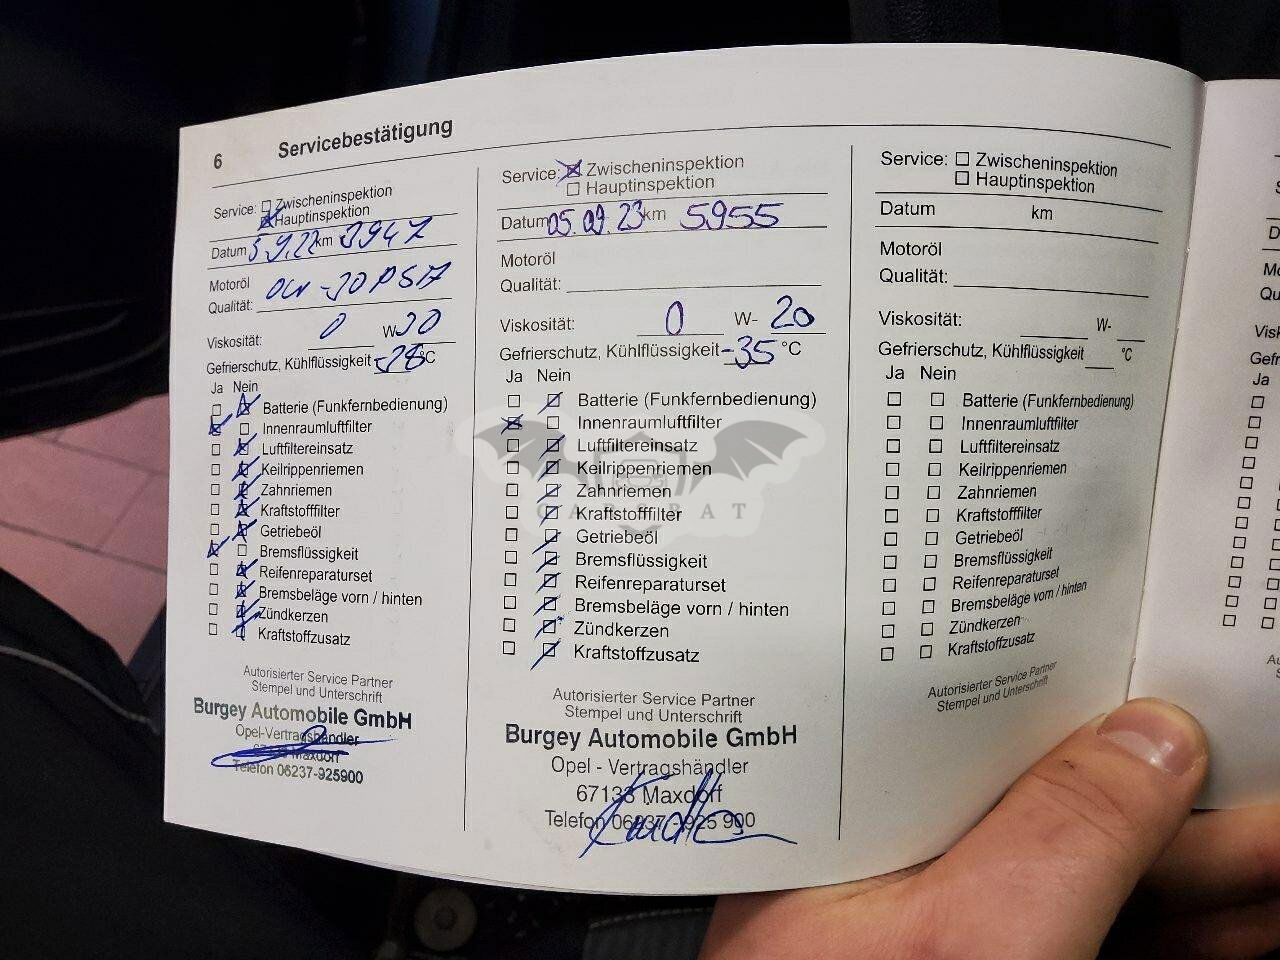 6 Servicebestätigung
Service: Zwischeninspektion
Hauptinspektion
Datum 5.9.22 km 3947
Motoröl
Qualität:
Viskosität: 0 W 30
Gefrierschutz, Kühlflüssigkeit -28 °C
Ja Nein
Batterie (Funkfernbedienung)
Innenraumluftfilter
Luftfiltereinsatz
Keilrippenriemen
Zahnriemen
Kraftstofffilter
Getriebeöl
Bremsflüssigkeit
Reifenreparaturset
Bremsbeläge vorn / hinten
Zündkerzen
Kraftstoffzusatz
Autorisierter Service Partner
Stempel und Unterschrift
Burgey Automobile GmbH
Opel-Vertragshändler
Maxdorf
Telefon 06237-925900
Service: Zwischeninspektion
Hauptinspektion
Datum 05.09.23 km 5955
Motoröl
Qualität:
Viskosität: 0 W- 20
Gefrierschutz, Kühlflüssigkeit -35 °C
Ja Nein
Batterie (Funkfernbedienung)
Innenraumluftfilter
Luftfiltereinsatz
Keilrippenriemen
Zahnriemen
Kraftstofffilter
Getriebeöl
Bremsflüssigkeit
Reifenreparaturset
Bremsbeläge vorn / hinten
Zündkerzen
Kraftstoffzusatz
Autorisierter Service Partner
Stempel und Unterschrift
Burgey Automobile GmbH
Opel - Vertragshändler
67133 Maxdorf
Telefon 06237 - 925 900
Service: Zwischeninspektion
Hauptinspektion
Datum km
Motoröl
Qualität:
Viskosität: W-
Gefrierschutz, Kühlflüssigkeit °C
Ja Nein
Batterie (Funkfernbedienung)
Innenraumluftfilter
Luftfiltereinsatz
Keilrippenriemen
Zahnriemen
Kraftstofffilter
Getriebeöl
Bremsflüssigkeit
Reifenreparaturset
Bremsbeläge vorn / hinten
Zündkerzen
Kraftstoffzusatz
Autorisierter Service Partner
Stempel und Unterschrift
Ja